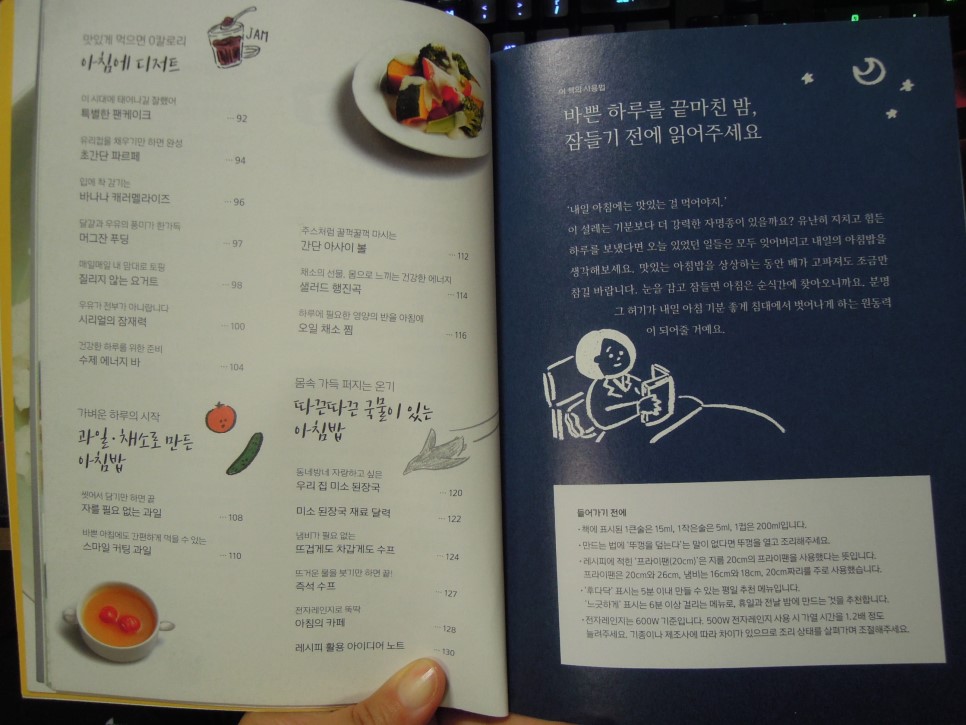 맛있게 먹으면 0칼로리
아침에 디저트
JAM
이 시대에 태어나길 잘했어
특별한 팬케이크 ··· 92
유리컵을 채우기만 하면 완성
초간단 파르페 ··· 94
입에 착 감기는
바나나 캐러멜라이즈 ··· 96
달걀과 우유의 풍미가 한가득
머그잔 푸딩 ··· 97
매일매일 내 맘대로 토핑
질리지 않는 요거트 ··· 98
우유가 전부가 아니랍니다
시리얼의 잠재력 ··· 100
건강한 하루를 위한 준비
수제 에너지 바 ··· 104
가벼운 하루의 시작
과일·채소로 만든
아침밥
씻어서 담기만 하면 끝
자를 필요 없는 과일 ··· 108
바쁜 아침에도 간편하게 먹을 수 있는
스마일 커팅 과일 ··· 110
주스처럼 꿀꺽꿀꺽 마시는
간단 아사이 볼 ··· 112
채소의 선물, 몸으로 느끼는 건강한 에너지
샐러드 행진곡 ··· 114
하루에 필요한 영양의 반을 아침에
오일 채소 찜 ··· 116
몸속 가득 퍼지는 온기
따끈따끈 국물이 있는
아침밥
동네방네 자랑하고 싶은
우리 집 미소 된장국 ··· 120
미소 된장국 재료 달력 ··· 122
냄비가 필요 없는
뜨겁게도 차갑게도 수프 ··· 124
뜨거운 물을 붓기만 하면 끝!
즉석 수프 ··· 127
전자레인지로 뚝딱
아침의 카페 ··· 128
레시피 활용 아이디어 노트 ··· 130
이 책의 사용법
바쁜 하루를 끝마친 밤,
잠들기 전에 읽어주세요
‘내일 아침에는 맛있는 걸 먹어야지.’
이 설레는 기분보다 더 강력한 자명종이 있을까요? 유난히 지치고 힘든
하루를 보냈다면 오늘 있었던 일들은 모두 잊어버리고 내일의 아침밥을
생각해보세요. 맛있는 아침밥을 상상하는 동안 배가 고파져도 조금만
참길 바랍니다. 눈을 감고 잠들면 아침은 순식간에 찾아오니까요. 분명
그 허기가 내일 아침 기분 좋게 침대에서 벗어나게 하는 원동력
이 되어줄 거예요.
들어가기 전에
· 책에 표시된 1큰술은 15ml, 1작은술은 5ml, 1컵은 200ml입니다.
· 만드는 법에 ‘뚜껑을 덮는다’는 말이 없다면 뚜껑을 열고 조리해주세요.
· 레시피에 적힌 ‘프라이팬(20cm)’은 지름 20cm의 프라이팬을 사용했다는 뜻입니다.
프라이팬은 20cm와 26cm, 냄비는 16cm와 18cm, 20cm짜리를 주로 사용했습니다.
· ‘후다닥’ 표시는 5분 이내 만들 수 있는 평일 추천 메뉴입니다.
‘느긋하게’ 표시는 6분 이상 걸리는 메뉴로, 휴일과 전날 밤에 만드는 것을 추천합니다.
· 전자레인지는 600W 기준입니다. 500W 전자레인지 사용 시 가열 시간을 1.2배 정도
늘려주세요. 기종이나 제조사에 따라 차이가 있으므로 조리 상태를 살펴가며 조절해주세요.